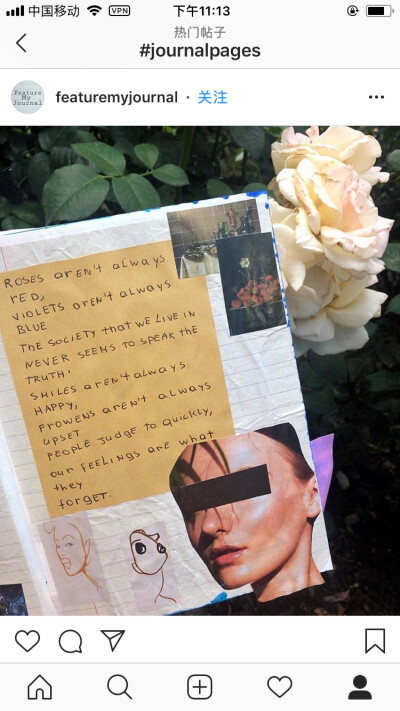 中国移动 VPN 下午11:13
热门帖子
#journalpages
Feature
My
Journal
featuremyjournal · 关注
ROSES arEN't aLWays
rED,
VIOLETS arEN't aLways
BLUE
THE SOCIETY that WE LIVE IN
NEVER SEEMS TO SPEAK THE
TRUTH.
SMILES arEN't aLways
HAPPY,
FROWENS arEN't aLways
upSET
PEOPLE JUDGE TO QUICKLY,
our FEELINGS arE what
they
forGET.